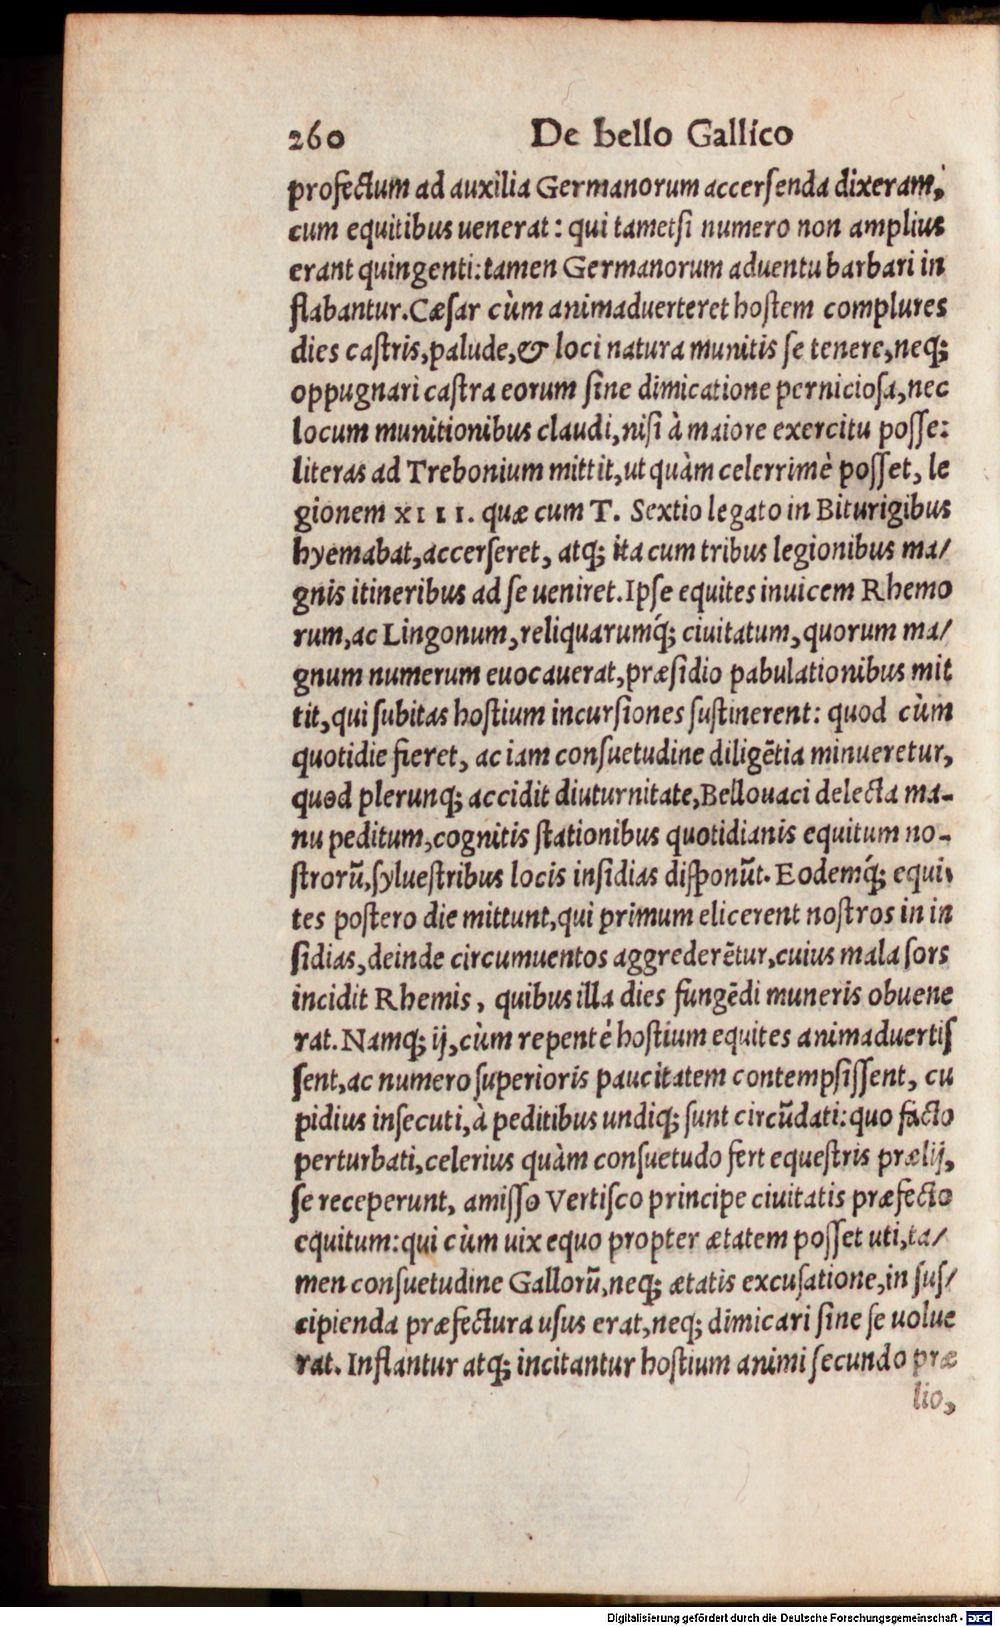 260 De bello Gallico
profectum ad auxilia Germanorum accerſenda dixeram,
cum equitibus uenerat: qui tametſi numero non amplius
erant quingenti: tamen Germanorum aduentu barbari in
flabantur. Cæſar cùm animaduerteret hoſtem complures
dies caſtris, palude, & loci natura munitis ſe tenere, neq;
oppugnari caſtra eorum ſine dimicatione pernicioſa, nec
locum munitionibus claudi, niſi à maiore exercitu poſſe:
literas ad Trebonium mittit, ut quàm celerrimè poſſet, le
gionem XIIII. quæ cum T. Sextio legato in Biturigibus
hyemabat, accerſeret, atq; ita cum tribus legionibus ma/
gnis itineribus ad ſe ueniret. Ipſe equites inuicem Rhemo
rum, ac Lingonum, reliquarumq́; ciuitatum, quorum ma/
gnum numerum euocauerat, præſidio pabulationibus mit
tit, qui ſubitas hoſtium incurſiones ſuſtinerent: quod cùm
quotidie fieret, ac iam conſuetudine diligẽtia minueretur,
quod plerunq; accidit diuturnitate, Bellouaci delecta ma-
nu peditum, cognitis ſtationibus quotidianis equitum no-
ſtrorũ, ſylueſtribus locis inſidias diſponũt. Eodemq́; equi
tes poſtero die mittunt, qui primum elicerent noſtros in in
ſidias, deinde circumuentos aggrederẽtur, cuius mala ſors
incidit Rhemis, quibus illa dies fungẽdi muneris obuene
rat. Namq; ij, cùm repentè hoſtium equites animaduertiſ
ſent, ac numero ſuperioris paucitatem contempſiſſent, cu
pidius inſecuti, à peditibus undiq; ſunt circũdati: quo facto
perturbati, celerius quàm conſuetudo fert equeſtris prælij,
ſe receperunt, amiſſo Vertiſco principe ciuitatis præfecto
equitum: qui cùm uix equo propter ætatem poſſet uti, ta/
men conſuetudine Gallorũ, neq; ætatis excuſatione, in ſuſ/
cipienda præfectura uſus erat, neq; dimicari ſine ſe uolue
rat. Inflantur atq; incitantur hoſtium animi ſecundo præ
lio,
Digitalisierung gefördert durch die Deutsche Forschungsgemeinschaft - DFG